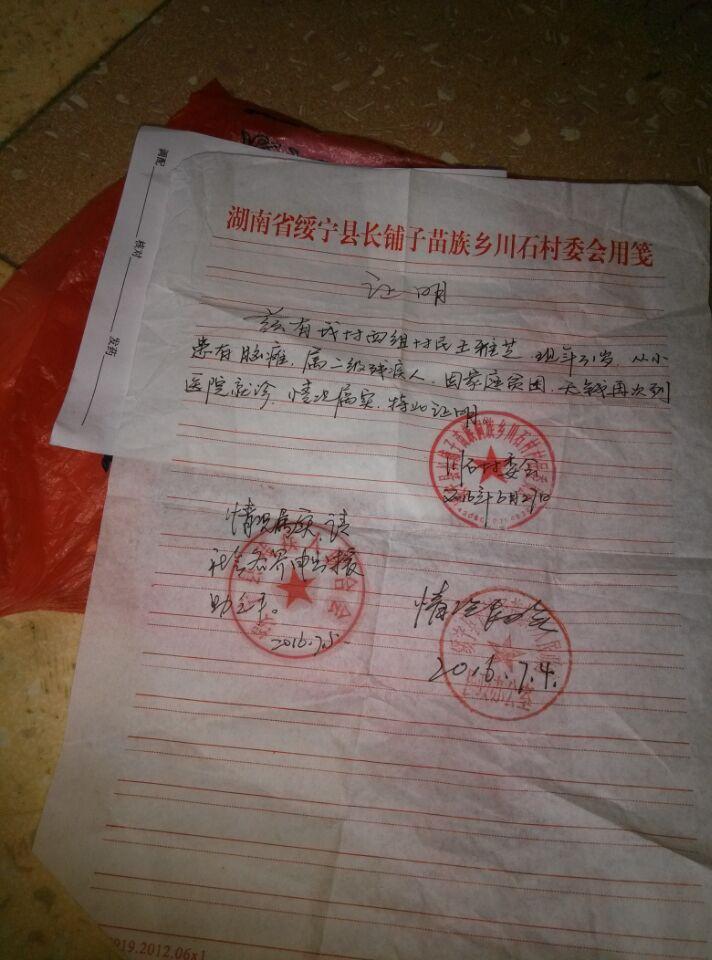 湖南省绥宁县长铺子苗族乡川石村委会用笺
证明
兹有我村四组村民王雅芝,现年31岁,从小
患有脑瘫,属二级残疾人,因家庭贫困,无钱再次到
医院就诊,情况属实,特此证明
川石村委会
2016年6月29日
情况属实,请
社会各界伸出援
助之手。
2016.7.5.
情况属实
2016.7.4.
调配
核对
发药
919.2012.06x1